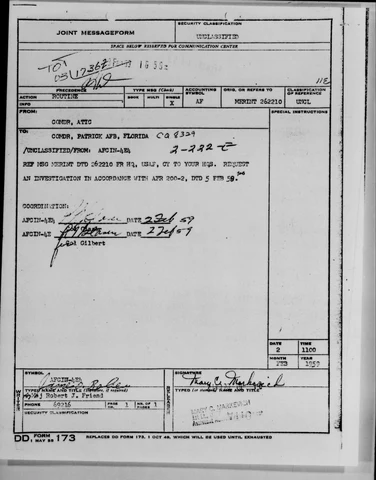 JOINT MESSAGEFORM
SECURITY CLASSIFICATION
UNCLASSIFIED
SPACE BELOW RESERVED FOR COMMUNICATION CENTER
PRECEDENCE
TYPE MSG (Check)
ACCOUNTING SYMBOL
ORIG. OR REFERS TO
CLASSIFICATION OF REFERENCE
ACTION
ROUTINE
BOOK
MULTI
SINGLE
X
AF
MERIDT 262210
UNCL
INFO
FROM:
SPECIAL INSTRUCTIONS
COMDR, ATIC
TO:
COMDR, PATRICK AFB, FLORIDA
/UNCLASSIFIED/FROM: AFCIN-4E4
2-222-E
REF MSG MERIDT DTD 262210 FR HQ, USAF, CY TO YOUR HQS. REQUEST
AN INVESTIGATION IN ACCORDANCE WITH AFR 200-2, DTD 5 FEB 58.
COORDINATION:
AFCIN-4E4 DATE 2 Feb 59
AFCIN-4E DATE 2 Feb 59
Col Gilbert
DATE
TIME
2
1100
MONTH
YEAR
FEB
1959
SYMBOL
AFCIN-4E4
SIGNATURE
TYPED NAME AND TITLE (Signature, if required)
Maj Robert J. Friend
TYPED (or stamped) NAME AND TITLE
WRITER
RELEASER
PHONE
69216
PAGE NO.
1
NO. OF PAGES
1
SECURITY CLASSIFICATION
DD FORM 1 MAY 55 173
REPLACES DD FORM 173, 1 OCT 49, WHICH WILL BE USED UNTIL EXHAUSTED